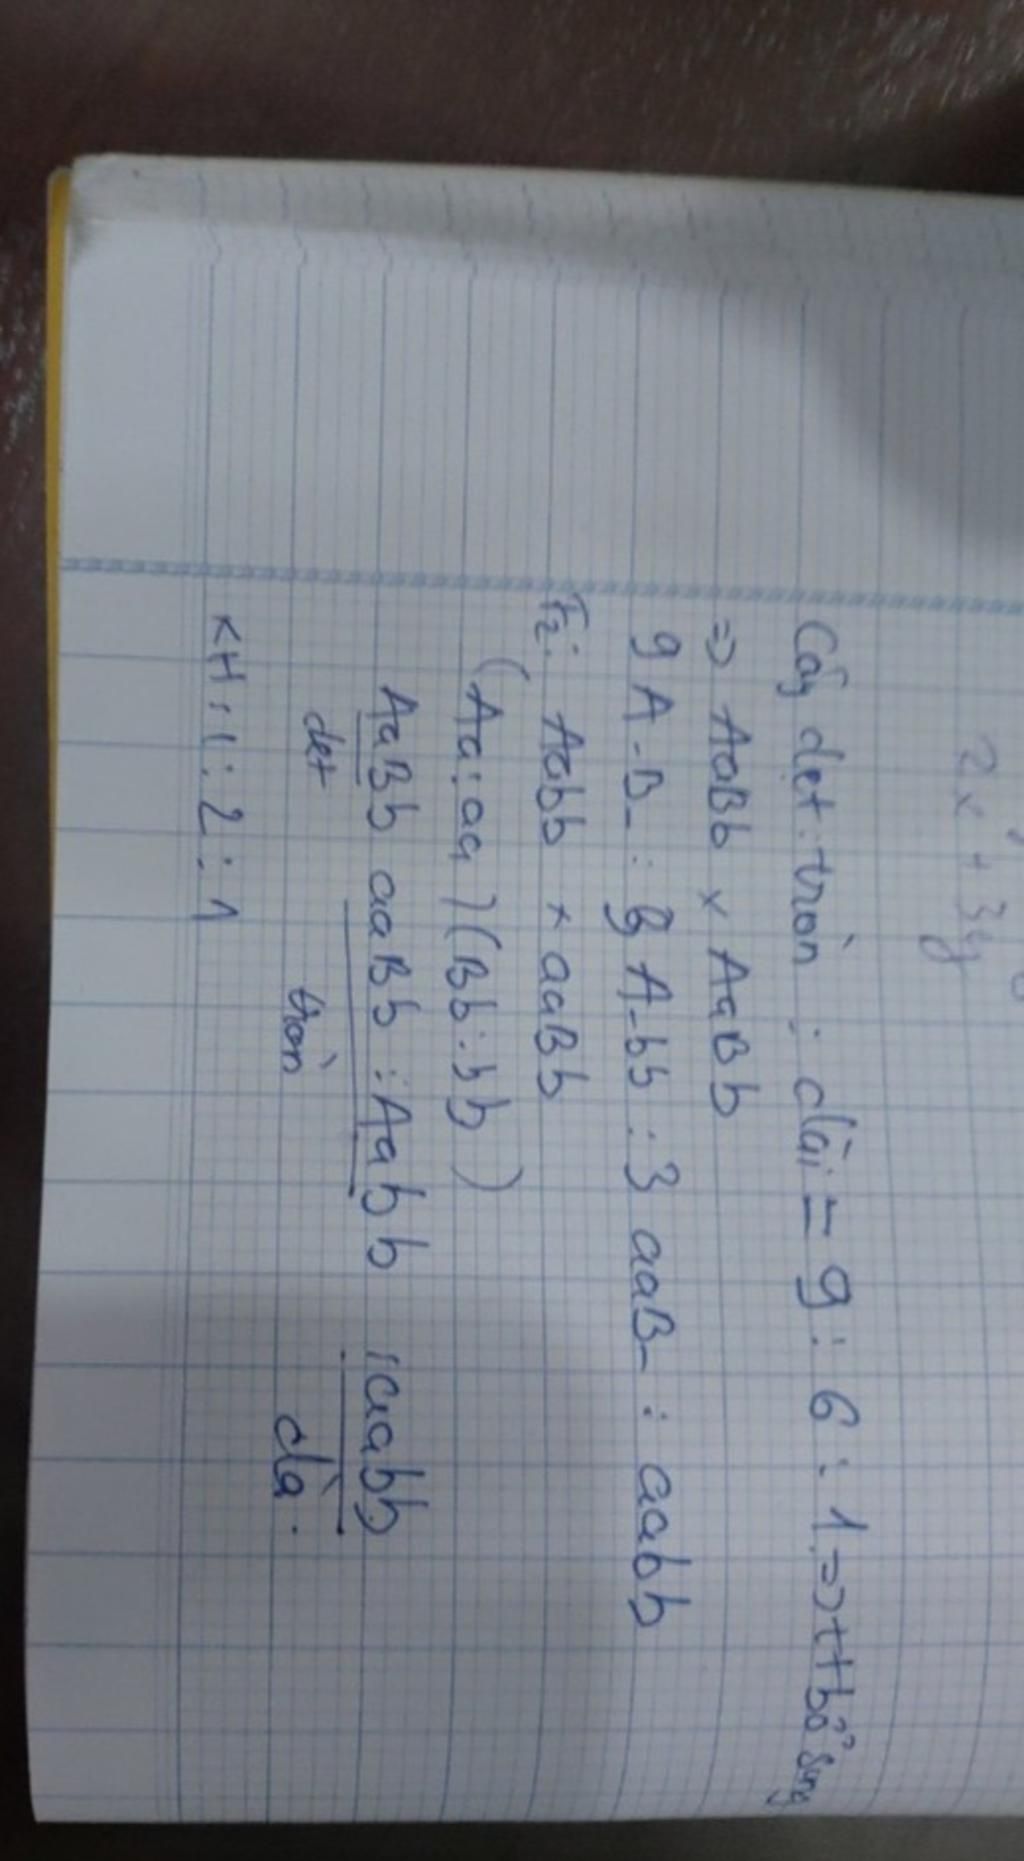 2x + 3y
Cây dẹt : tròn : dài = 9 : 6 : 1 => tt bổ sung
=> AaBb x AaBb
9 A-B- : 3 A-bb : 3 aaB- : aabb
F2: Aabb x aaBb
(Aa : aa)(Bb : bb)
AaBb aaBb : Aabb : aabb
dẹt tròn dà.
KH : 1 : 2 : 1